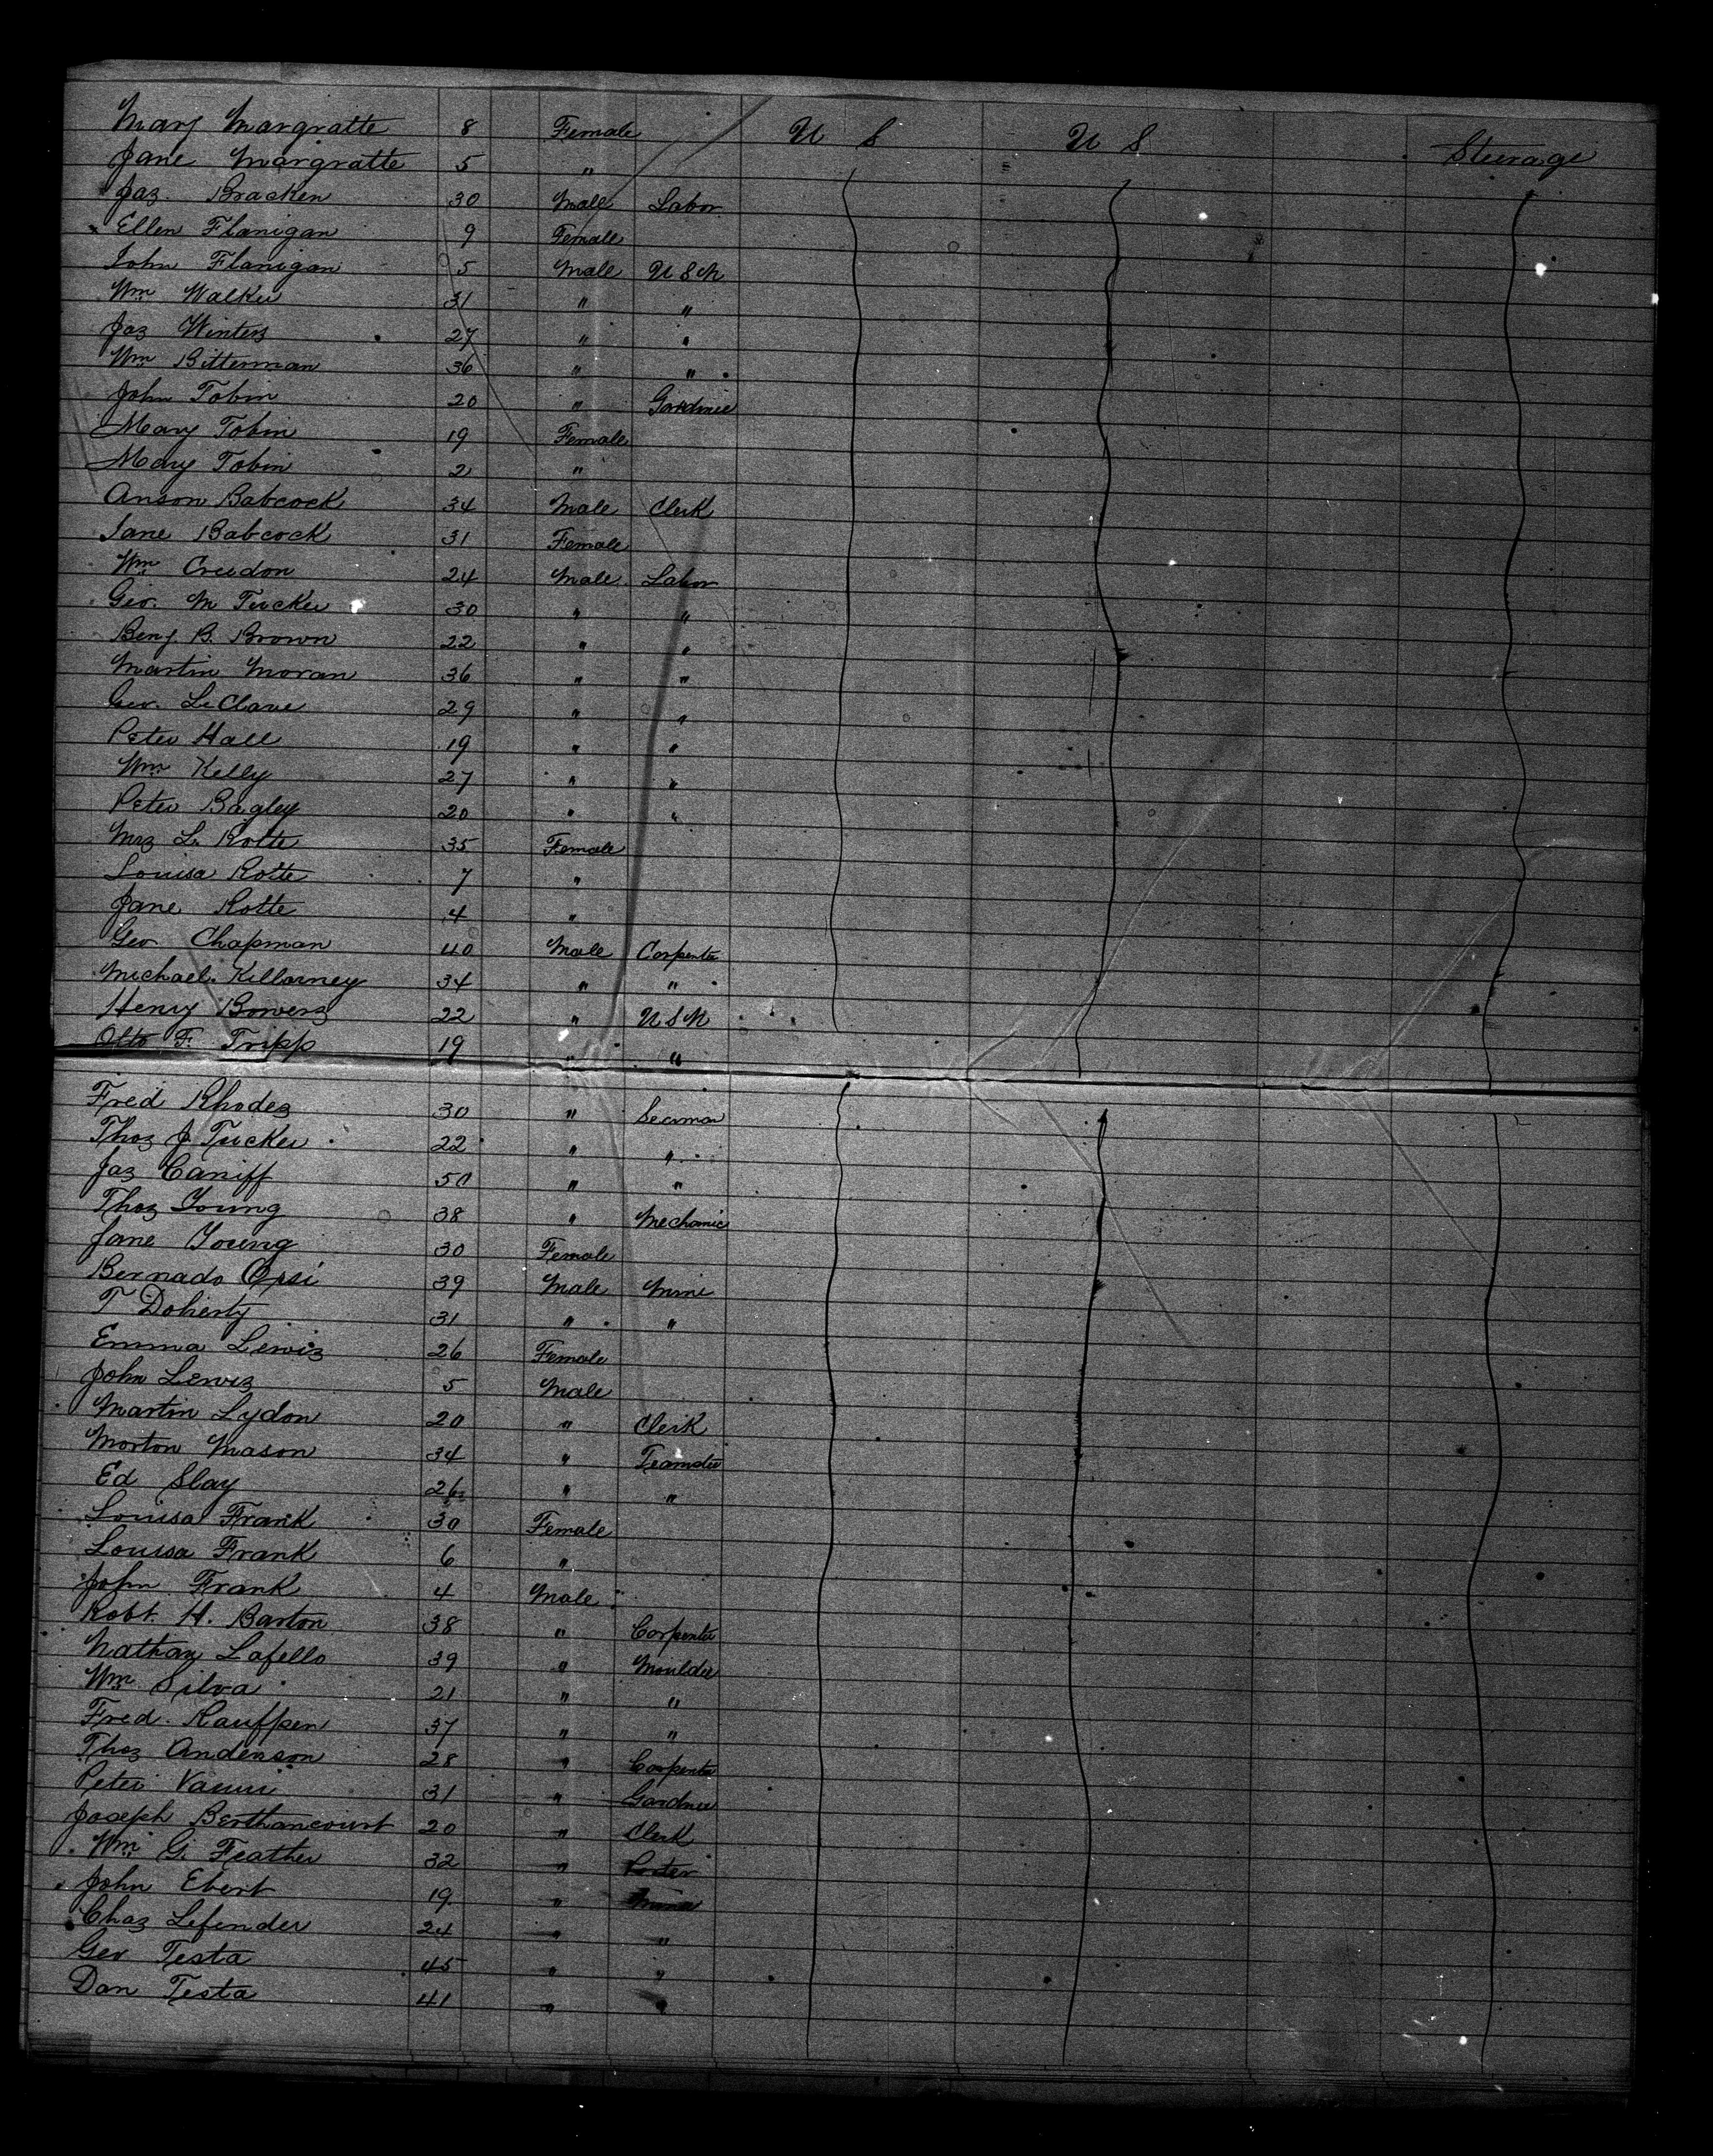 Mary Margratte 8 Female U S U S Steerage
Jane Margratte 5 "
Jas. Bracken 30 Male Labor
Ellen Flanigan 9 Female
John Flanigan 5 Male U S N
Wm Walker 31 " "
Jas Winters 27 " "
Wm Bitterman 36 " "
John Tobin 20 " Gardner
Mary Tobin 19 Female
Mary Tobin 2 "
Anson Babcock 34 Male Clerk
Jane Babcock 31 Female
Wm Creedon 24 Male Labor
Geo. M Tucker 30 " "
Benj. B. Brown 22 " "
Martin Moran 36 " "
Geo. LeClare 29 " "
Peter Hall 19 " "
Wm Kelly 27 " "
Peter Bagley 20 " "
Mrs L. Rotte 35 Female
Louisa Rotte 7 "
Jane Rotte 4 "
Geo Chapman 40 Male Carpenter
Michael Killarney 34 " "
Henry Bowers 22 " U S N
Otto F. Tripp 19 " "
Fred Rhodes 30 " Seaman
Thos J Tucker 22 " "
Jas Caniff 50 " "
Thos Young 38 " Mechanic
Jane Young 30 Female
Bernado Orsi 39 Male Mine
T Doherty 31 " "
Emma Lewis 26 Female
John Lewis 5 Male
Martin Lydon 20 " Clerk
Morton Mason 34 " Teamster
Ed Slay 26 " "
Louisa Frank 30 Female
Louisa Frank 6 "
John Frank 4 Male
Robt. H. Barton 38 " Carpenter
Nathan Lafello 39 " Moulder
Wm Silva 21 " "
Fred. Kauffpen 37 " "
Thos Anderson 28 " Carpenter
Peter 31 " Gardner
Joseph Berthancourt 20 " Clerk
Wm G. Feather 32 " Porter
John Ebert 19 "
Chas Lefender 24 " "
Geo Testa 45 " "
Dan Testa 41 " "